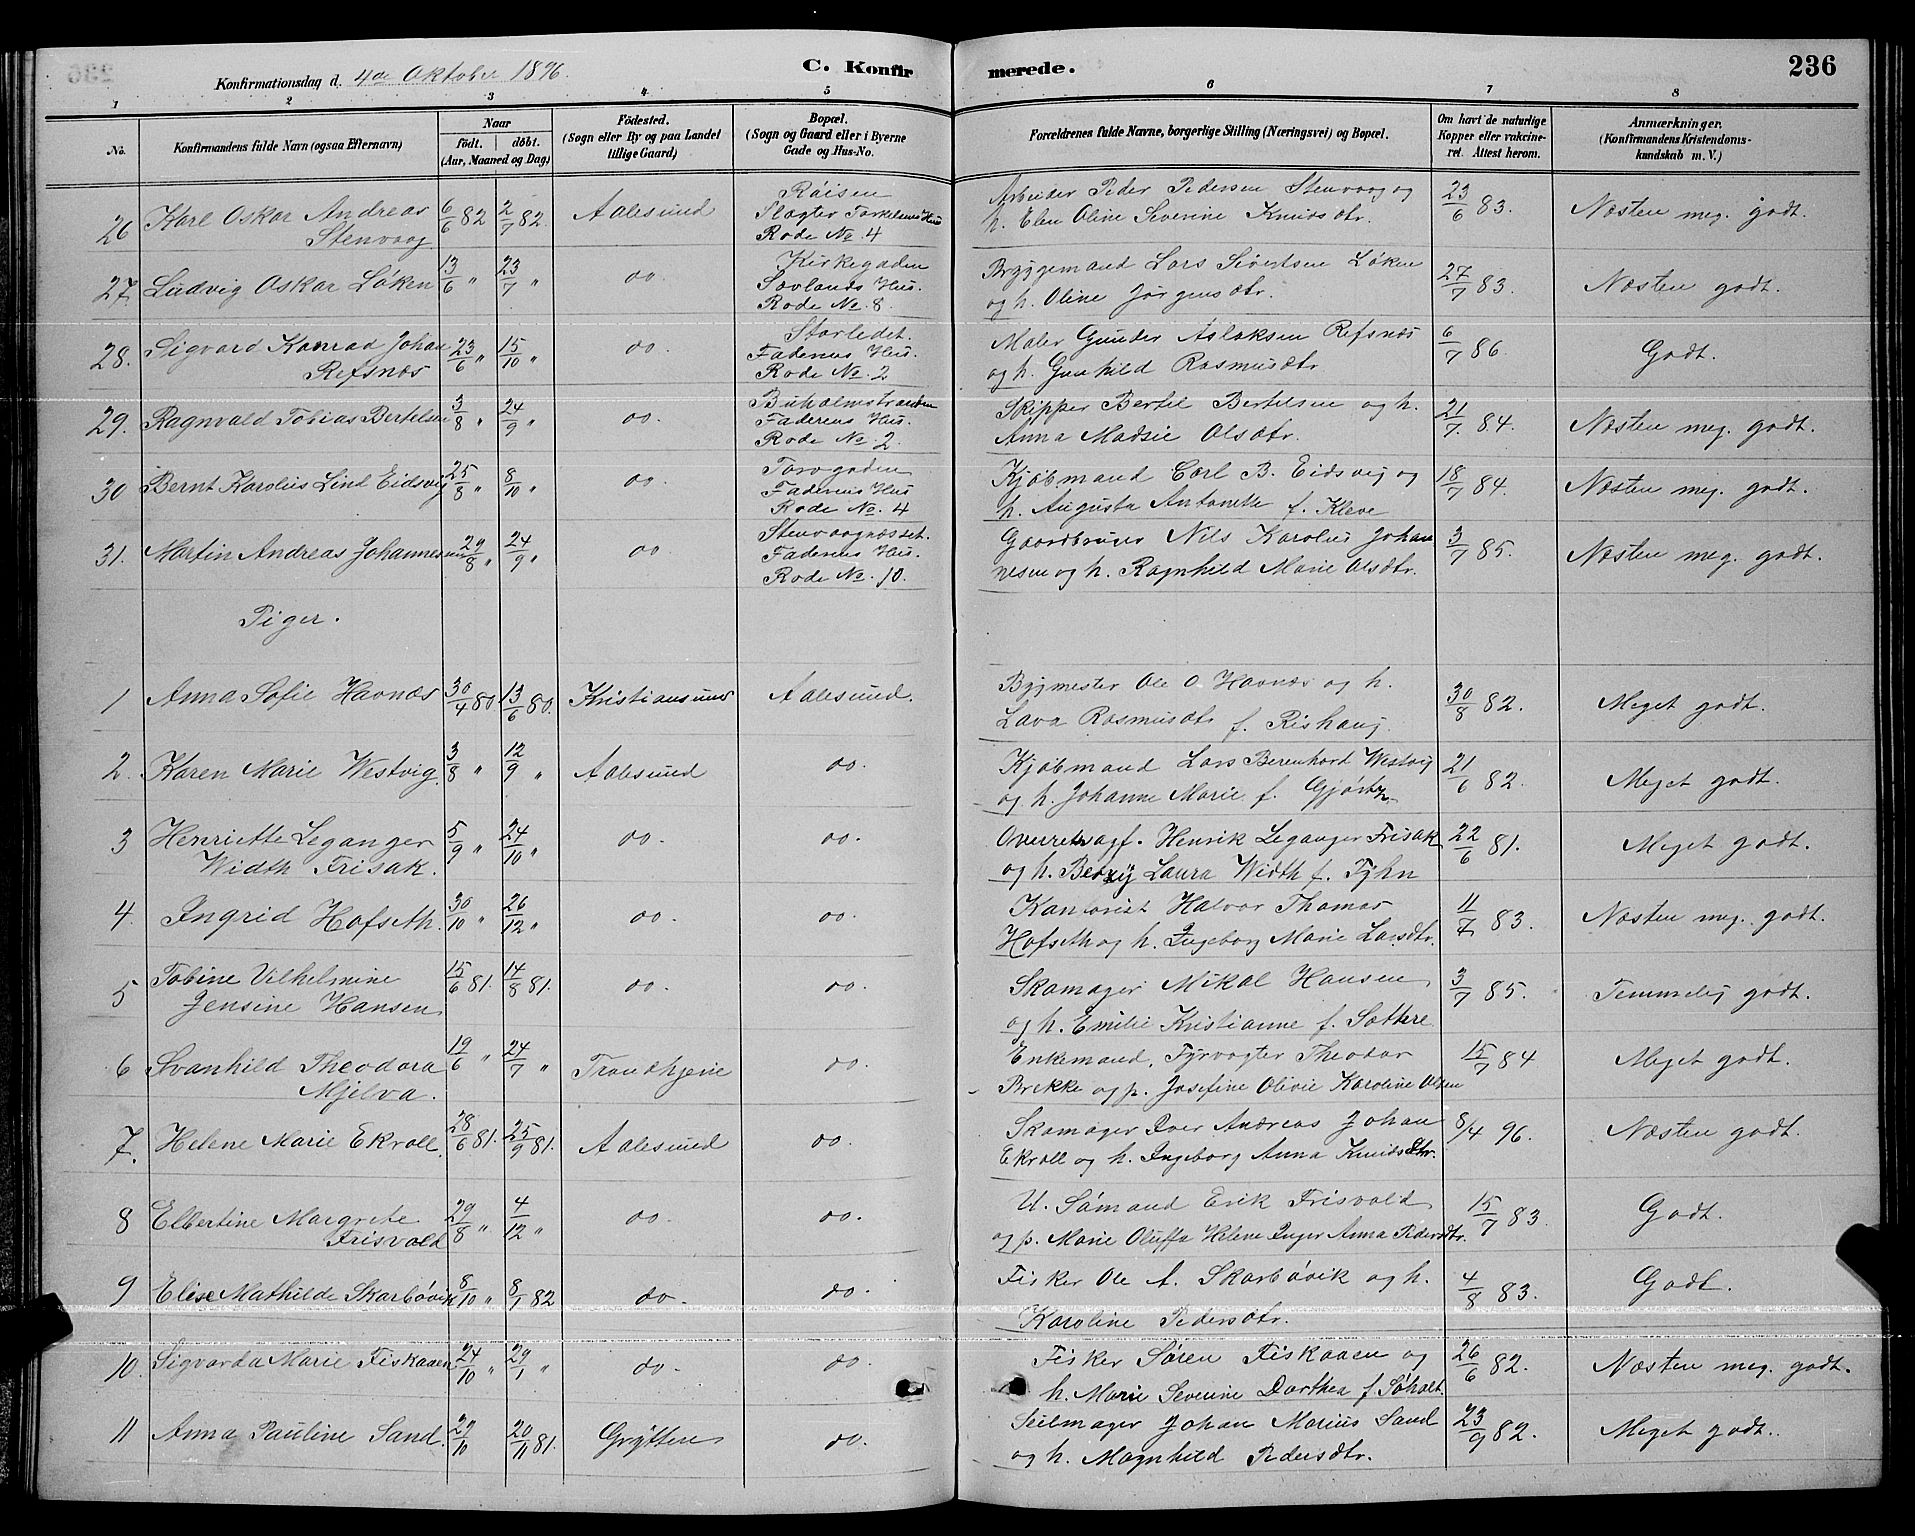 Konfirmationsdag d. 4de Oktober 1896.
C. Konfirmerede.
236
1 2 3 4 5 6 7 8
No.
Konfirmandens fulde Navn (ogsaa Efternavn)
Naar
födt. döbt.
(Aar, Maaned og Dag)
Födested.
(Sogn eller By og paa Landet
tillige Gaard)
Bopæl.
(Sogn og Gaard eller i Byerne
Gade og Hus-No.
Forældrenes fulde Navne, borgerlige Stilling (Næringsvei) og Bopæl.
Om havt de naturlige
Kopper eller vakcine-
ret. Attest herom.
Anmærkninger.
(Konfirmandens Kristendoms-
kundskab m. V.)
26 Karl Oskar Andreas
Stenvaag
6/6 82 2/7 82. Aalesund
Röisen
Slagter Torkelsens Hus
Rode No. 4
Arbeider Peder Pedersen Stenvaag og
h. Elen Oline Severine Knudsdtr.
23/6 83. Næsten meg. godt.
27 Ludvig Oskar Löken 13/6 " 23/7 " do.
Kirkegaden
Sævlands Hus.
Rode No. 8.
Bryggemand Lars Sivertsen Löken
og h. Oline Jörgensdtr.
27/7 83. Næsten godt.
28. Sigvard Konrad Johan
Refsnæs
23/6 " 15/10 " do.
Storledet.
Faderens Hus.
Rode No. 2
Maler Gunder Aslaksen Refsnæs
og h. Gunhild Rasmusdtr
6/7 86. Godt.
29. Ragnvald Tobias Bertelsen 3/8 " 24/9 " do.
Buholmstranden
Faderens Hus.
Rode No. 2.
Skipper Bertel Bertelsen og h.
Anna Madsie Olsdtr.
21/7. 84. Næsten meg. godt.
30 Bernt Karolius Lind Eidsvig 25/8 " 8/10 " do.
Torvgaden
Faderens Hus
Rode No. 4
Kjöbmand Carl B. Eidsvig og
h. Augusta Antonette f. Kleve
18/7 84. Næsten meg. godt.
31. Martin Andreas Johannesen 29/8 " 24/9 " do.
Stenvaagnæsset.
Faderens Hus.
Rode No. 10.
Gaardbruger Nils Karolius Johan
nesen og h. Ragnhild Marie Olsdtr.
3/7 85. Næsten meg. godt.
Piger.
1 Anna Sofie Havnæs 30/4 80 13/6 80. Kristiansund Aalesund.
Bygmester Ole O. Havnæs og h.
Lava Rasmusdtr f. Rishaug.
30/8 82. Meget godt.
2. Karen Marie Westvig. 3/8 " 12/9 " Aalesund do.
Kjöbmand Lars Berenhard Westvig
og h. Johanne Marie f.
21/6 82. Meget godt.
3 Henriette Leganger
Width Frisak.
5/9 " 24/10 " do. do.
Overretssagf. Henrik Leganger Frisak
og h. Betzy Laura Width f. Fyhn
22/6 81. Meget godt.
4. Ingrid Hofseth. 30/10 " 26/12 " do. do.
Kontorist Halvor Thomas
Hofseth og h. Ingeborg Marie Larsdtr.
11/7 83. Næsten meg. godt.
5 Tobine Vilhelmine
Jensine Hansen
15/6 81. 14/8 81. do. do.
Skomager Mikal Hansen
og h. Emilie Kristianne f. Sættere
3/7 85. Temmelig godt.
6 Svanhild Theodora
Mjelva.
19/6 " 24/7 " Trondhjem do.
Enkemand, Fyrvogter Theodor
Brekke og p. Josefine Olivie Karoline Olsen
15/7 84 Meget godt.
7. Helene Marie Ekroll. 28/6 81. 25/9 81. Aalesund do.
Skomager Iver Andreas Johan
Ekroll og h. Ingeborg Anna Knudsdtr.
8/4 96. Næsten godt.
8 Elbertine Margrete
Frisvold
29/8 " 4/12 " do. do.
U. Sömand Erik Frisvold
og p. Marie Oluffa Helene Inger Anna Pedersdtr.
15/7 83. Godt.
9 Elise Mathilde Skarbövik 8/10 " 8/1 82 do. do.
Fisker Ole A. Skarbövik og h.
Karoline Pedersdtr.
4/8 83. Godt.
10. Sigvarda Marie Fiskaaen 24/10 " 29/1 " do. do.
Fisker Sören Fiskaaen og
h. Marie Severine Dorthea f. Söholt.
26/6 82. Næsten meg. godt.
11 Anna Pauline Sand. 29/10 20/11 81. Gryttere do.
Seilmager Johan Marius Sand
og h. Magnhild Pedersdtr.
23/9 82. Meget godt.